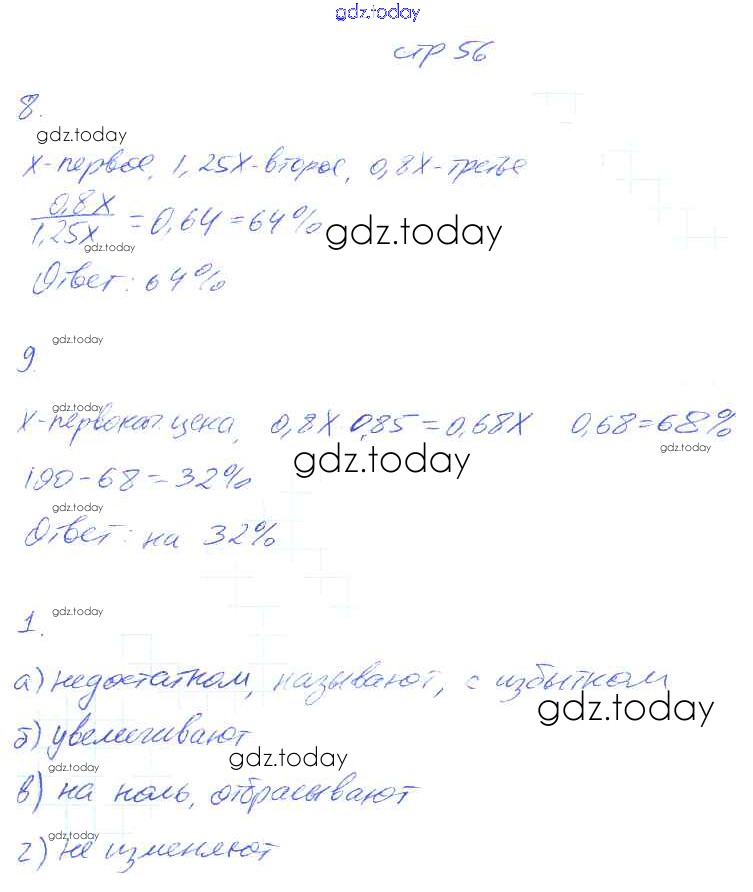 gdz.today
стр 56
8.
gdz.today
х-первое, 1,25х-второе, 0,8х-третье
0,8х/1,25х = 0,64 = 64% gdz.today
gdz.today
Ответ: 64%
gdz.today
9.
gdz.today
х-первонач. цена, 0,8х 0,85 = 0,68х 0,68 = 68%
gdz.today gdz.today
100-68 = 32%
gdz.today
Ответ: на 32%
gdz.today
1.
а) недостатком, называют, с избытком
gdz.today
б) увеличивают
gdz.today
gdz.today
в) на ноль, отбрасывают
gdz.today
г) не изменяют